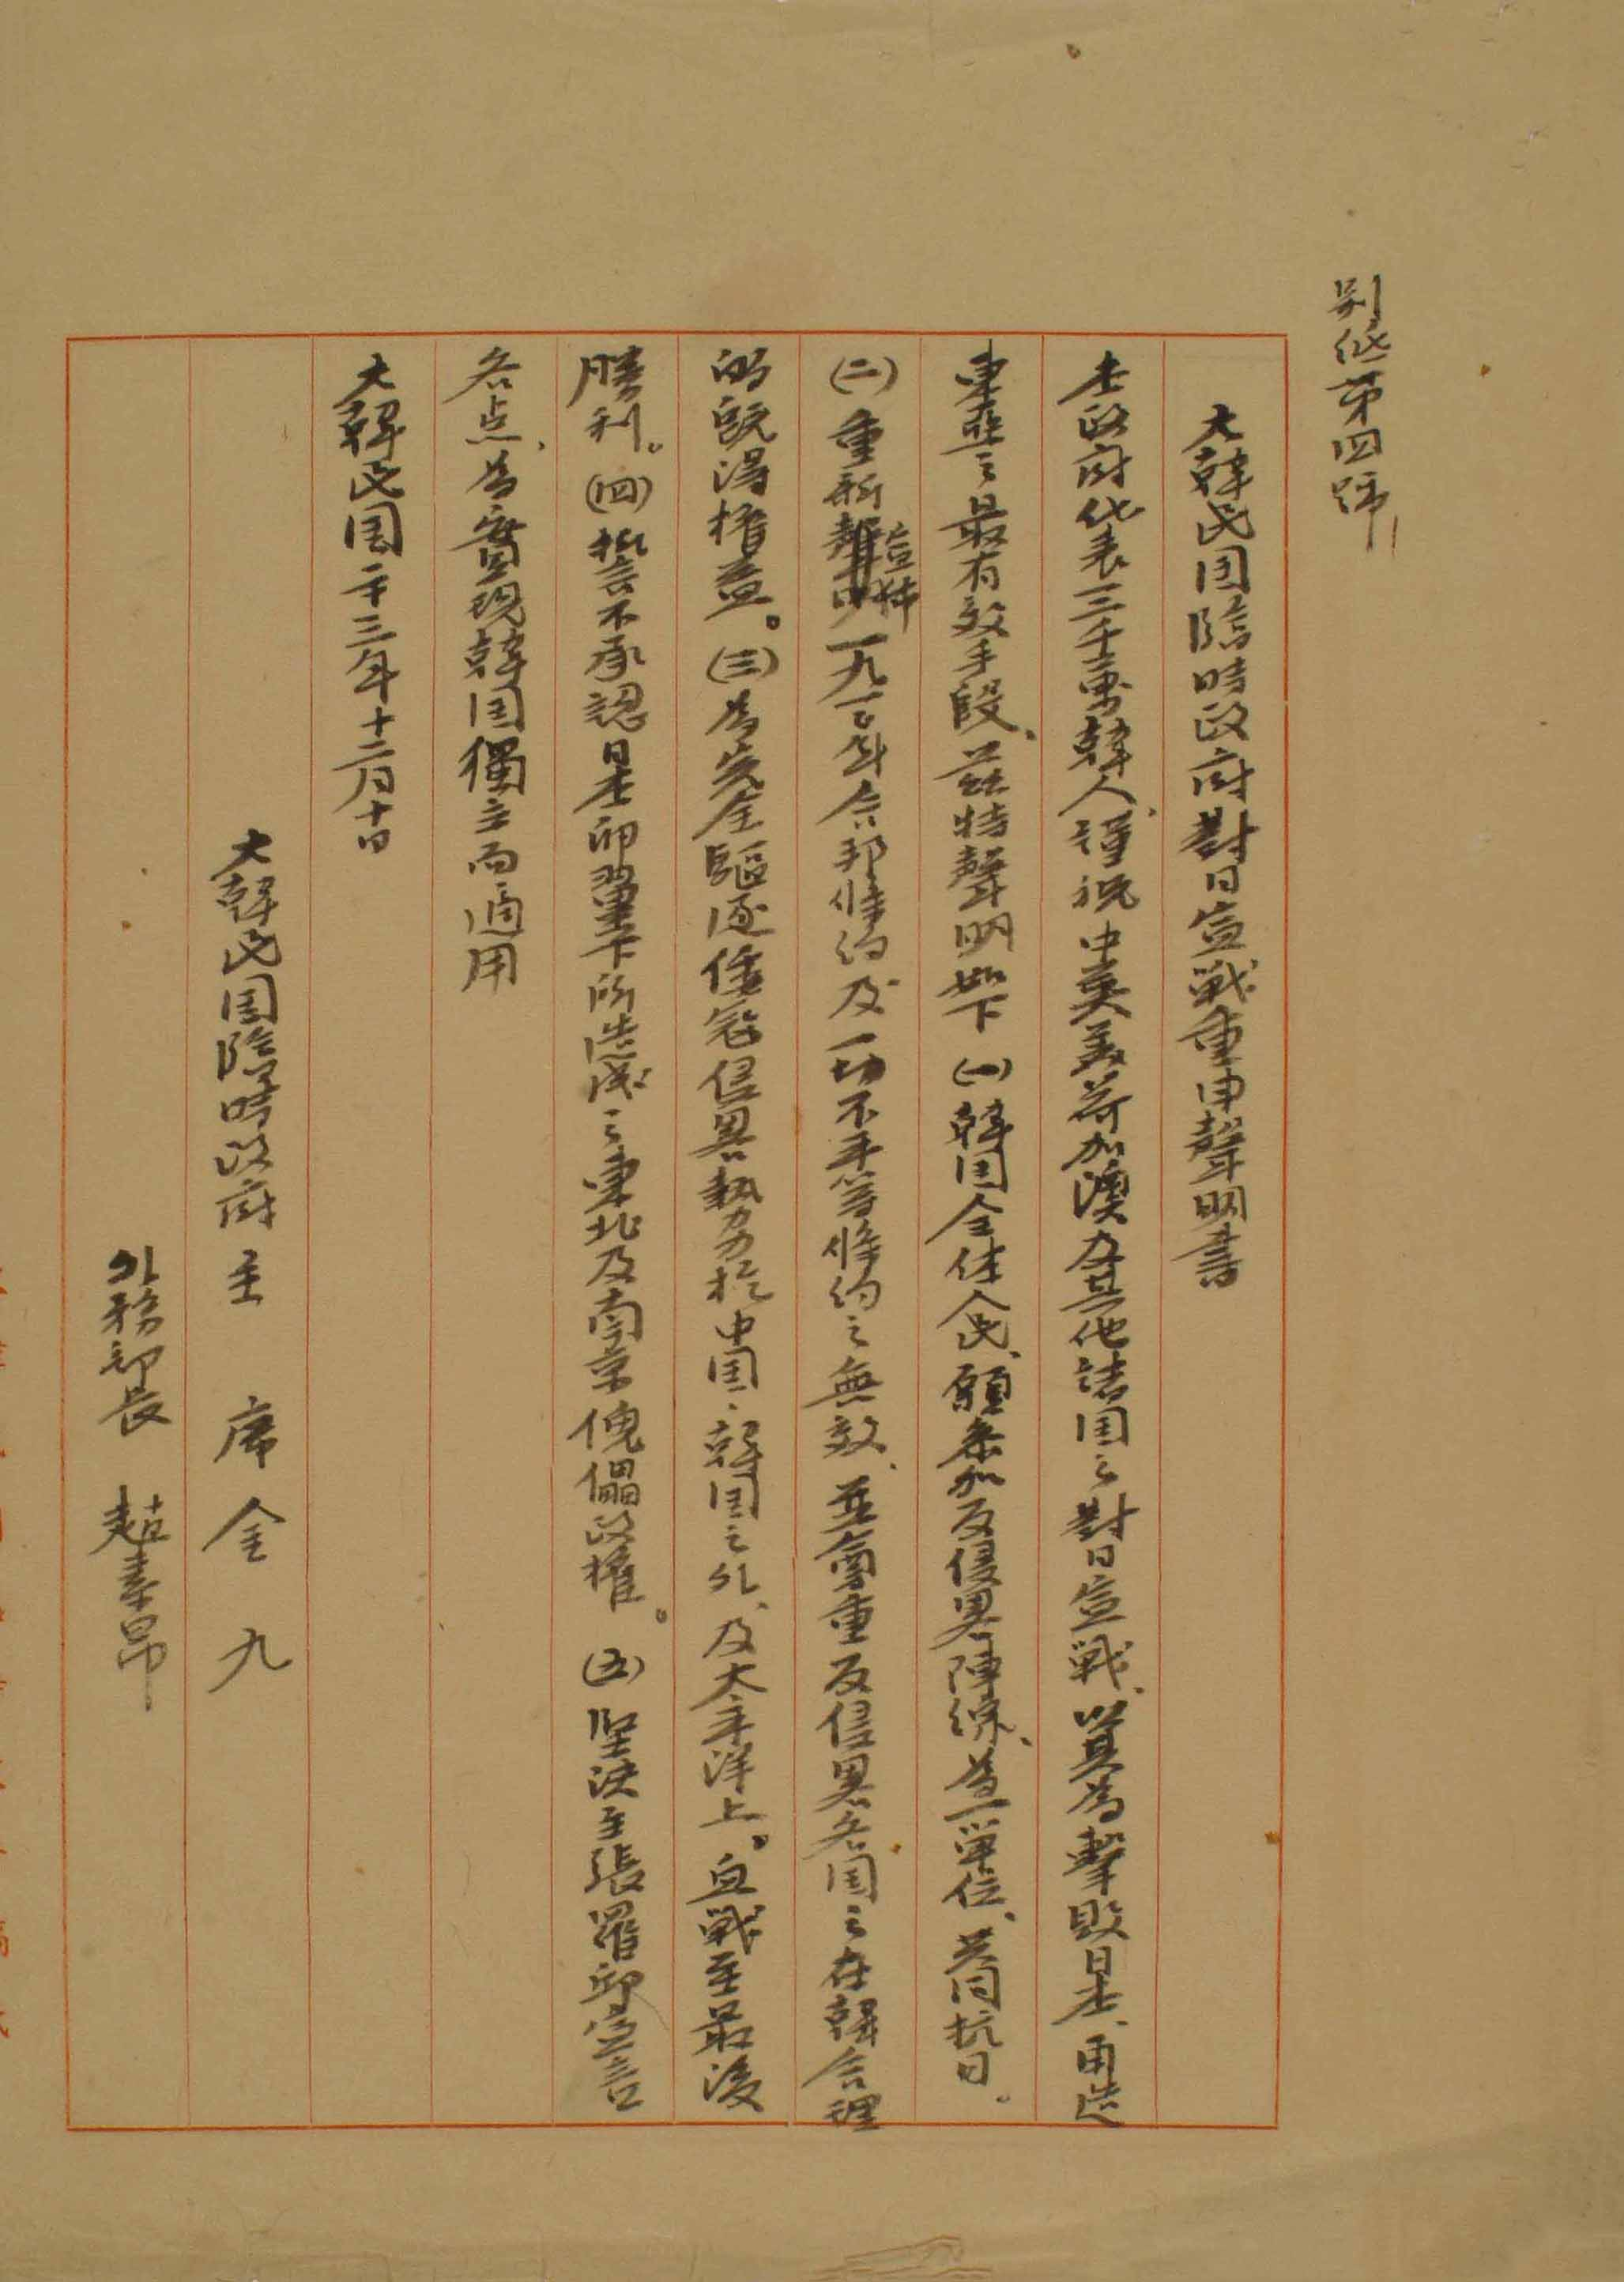 別紙第四號
大韓民国臨時政府對日宣戰重申聲明書
本政府代表三千萬韓人、謹祝中英美荷加澳及其他諸国之對日宣戰、以其為擊敗日本、再造
東亞之最有效手段、茲特聲明如下 (一)韓国全体人民、願參加反侵畧陣線、為一單位、共同抗日。
(二)重新宣佈一九一〇年合邦條約及一切不平等條約之無效、並尊重反侵畧各国之在韓合理
的既得權益。(三)為完全驅逐倭寇侵畧勢力於中国、韓国之外、及太平洋上。血戰至最後
勝利。(四)誓不承認日本卵翼下所造成之東北及南京傀儡政權。(五)堅決主張羅邱宣言
各点、為實現韓国獨立而適用
大韓民国二十三年十二月十日
大韓民国臨時政府 主 席 金 九
外務部長 趙素昻